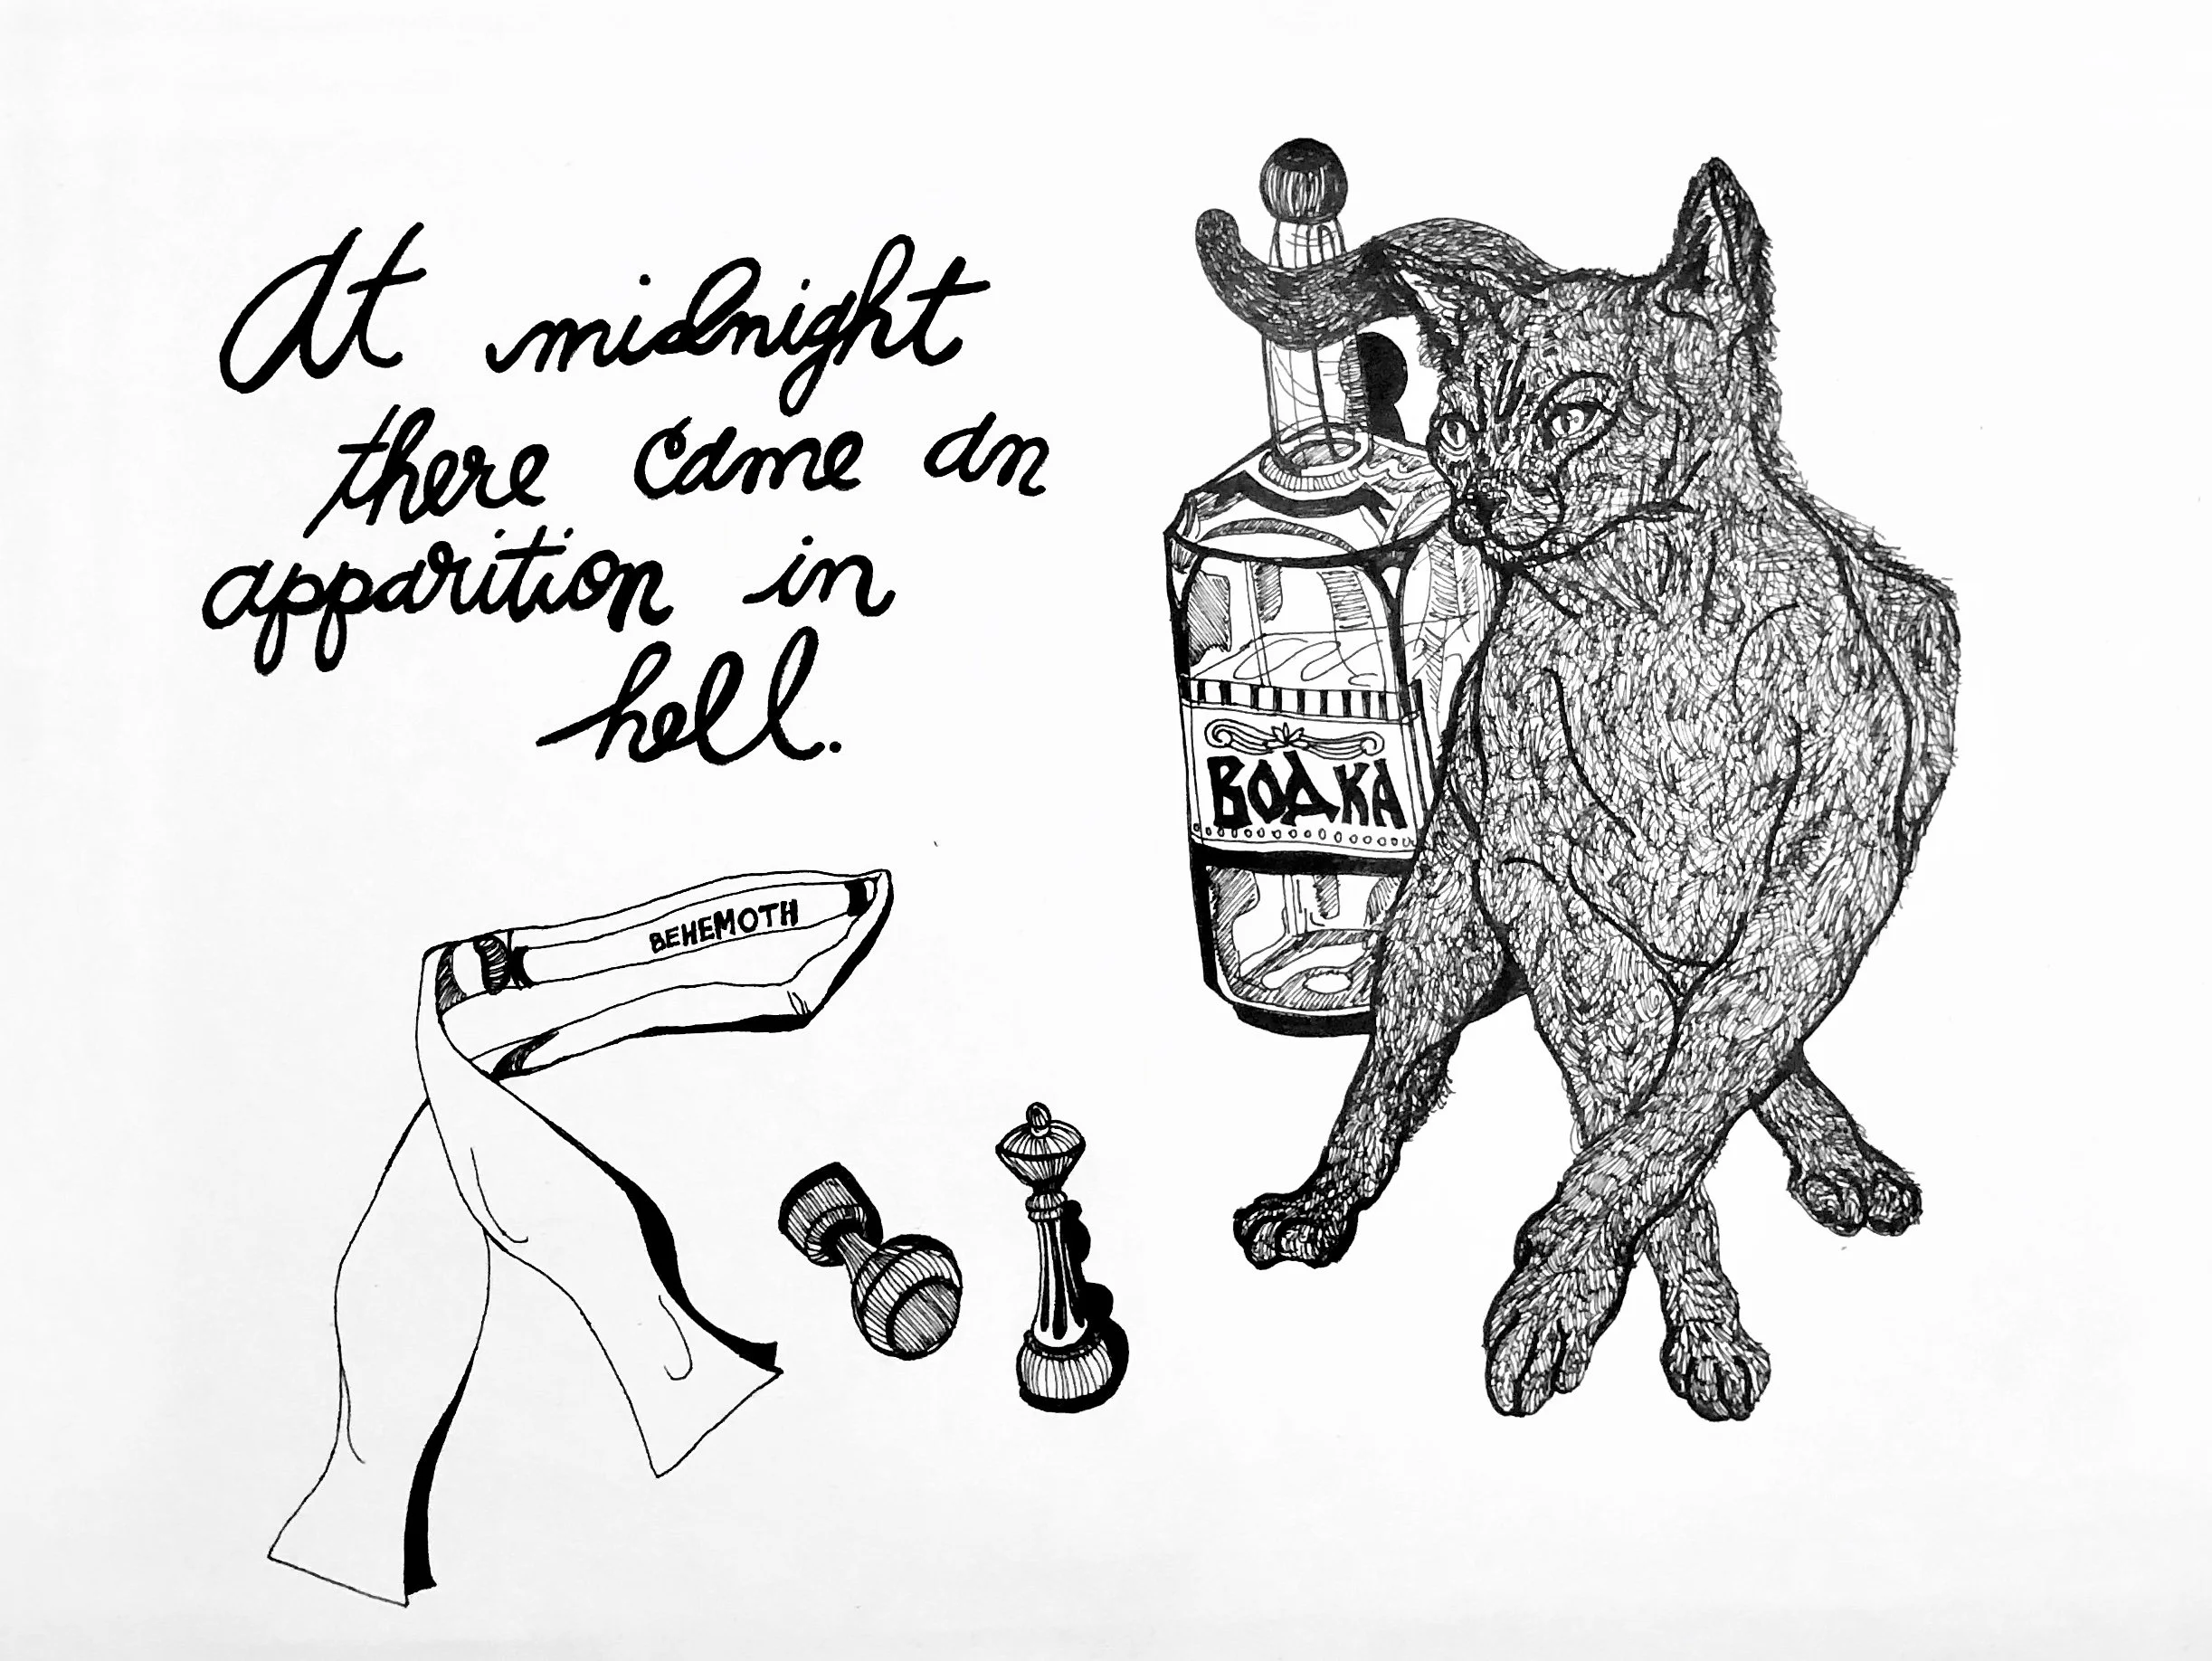 At midnight
there came an
apparition in
hell.
ВОДКА
BEHEMOTH